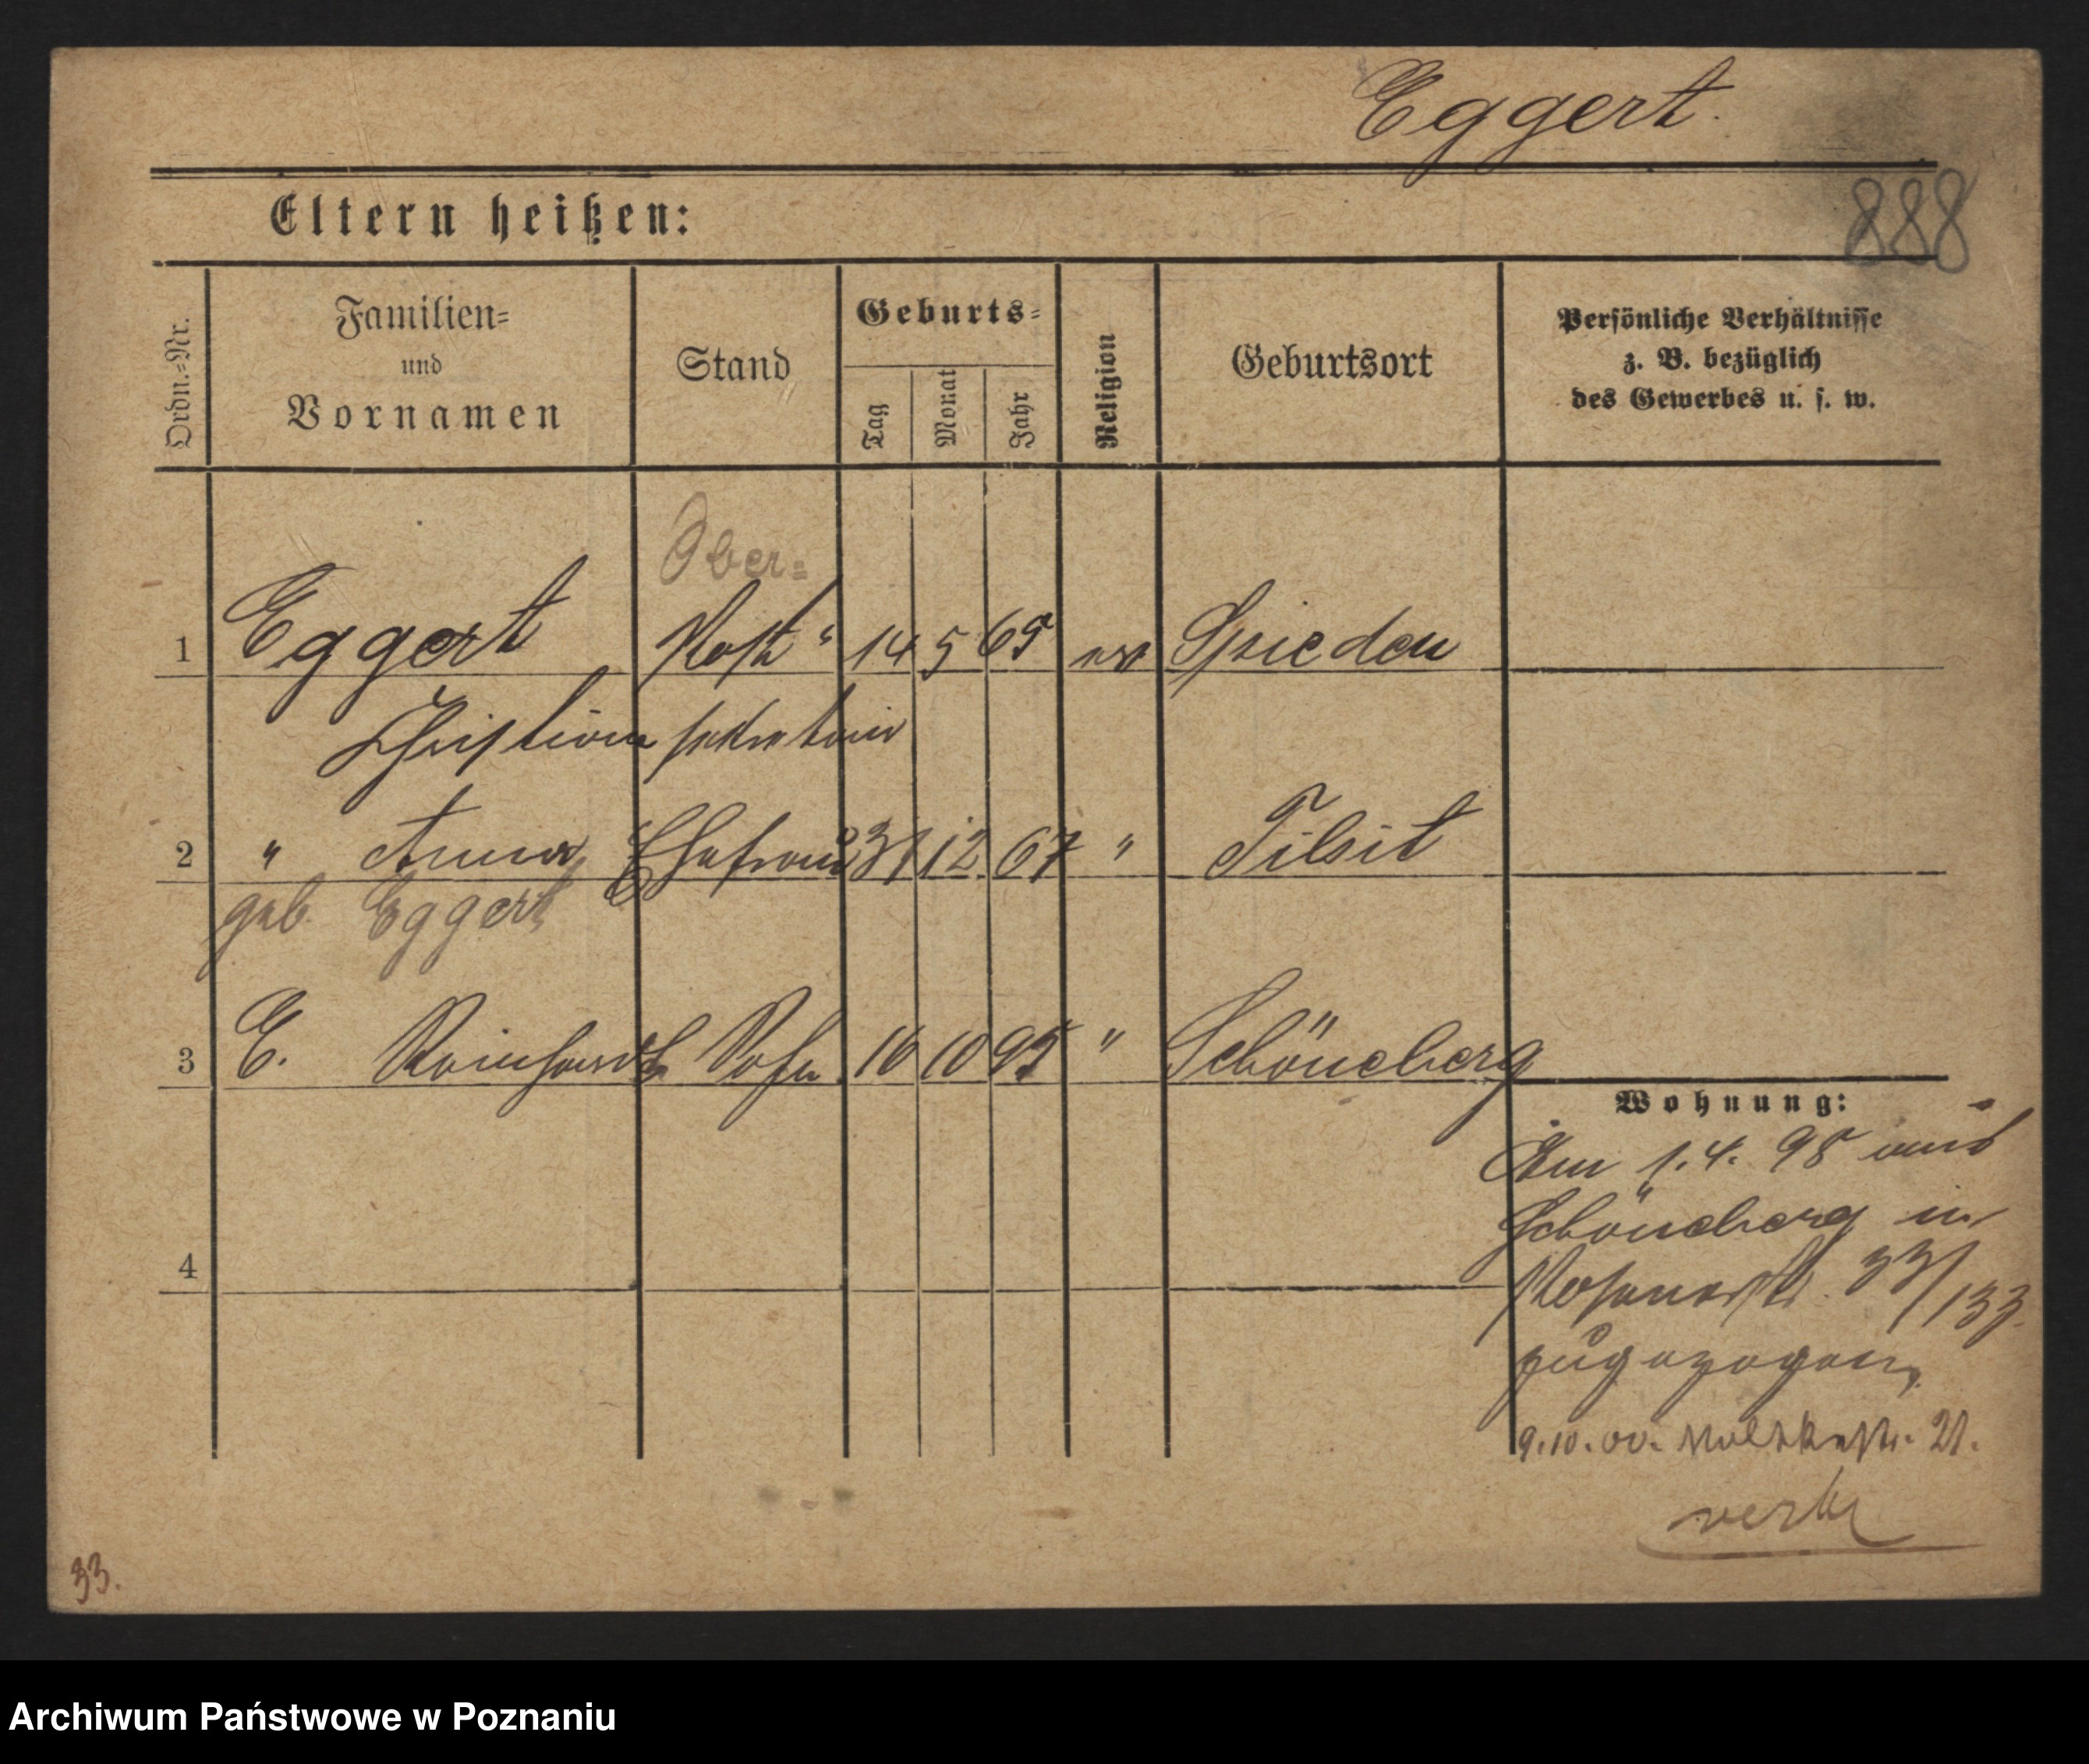 Eggert.
888
Eltern heißen:
Ordn.-Nr.
Familien-
und
Vornamen
Stand
Geburts-
Tag
Monat
Jahr
Religion
Geburtsort
Persönliche Verhältnisse
z. B. bezüglich
des Gewerbes u. s. w.
Ober-
1 Eggert Post- 14 5 65 ev Spieden
Christian sekretair
2 " Anna Ehefrau 31 12 67 " Tilsit
geb. Eggert
3 E. Reinhardt Sohn 10 95 " Schöneberg
Wohnung:
Am 1.4. 98 aus
Schöneberg in
Posenerstr. 33/133.
zugezogen
4
9.10.00. Moltkestr. 21.
33.
Archiwum Państwowe w Poznaniu